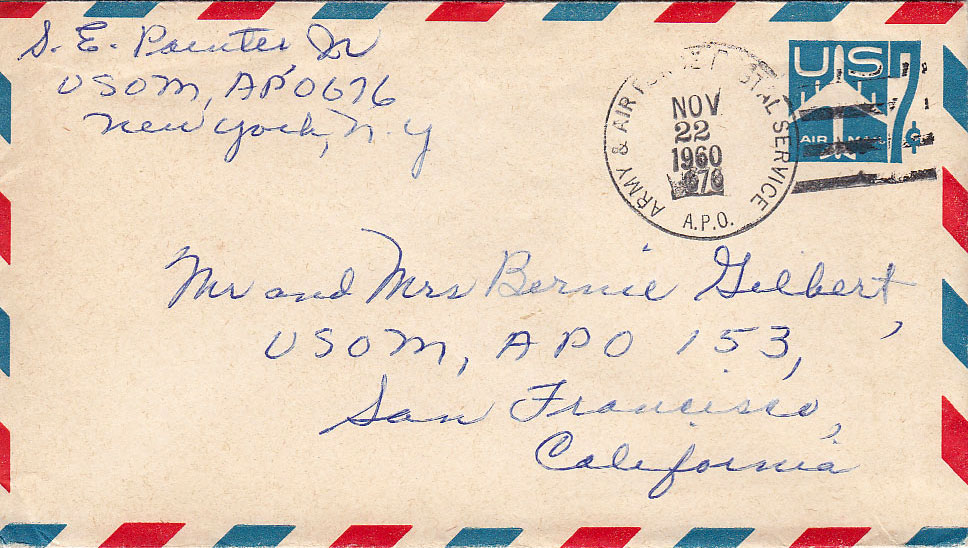 S. E. Pointer, Jr
USOM, APO 676
New York, N. Y
ARMY & AIR FORCE POSTAL SERVICE
NOV
22
1960
676
A.P.O.
US
7¢
AIR MAIL
Mr and Mrs Bernie Gilbert,
USOM, APO 153,
San Francisco,
California